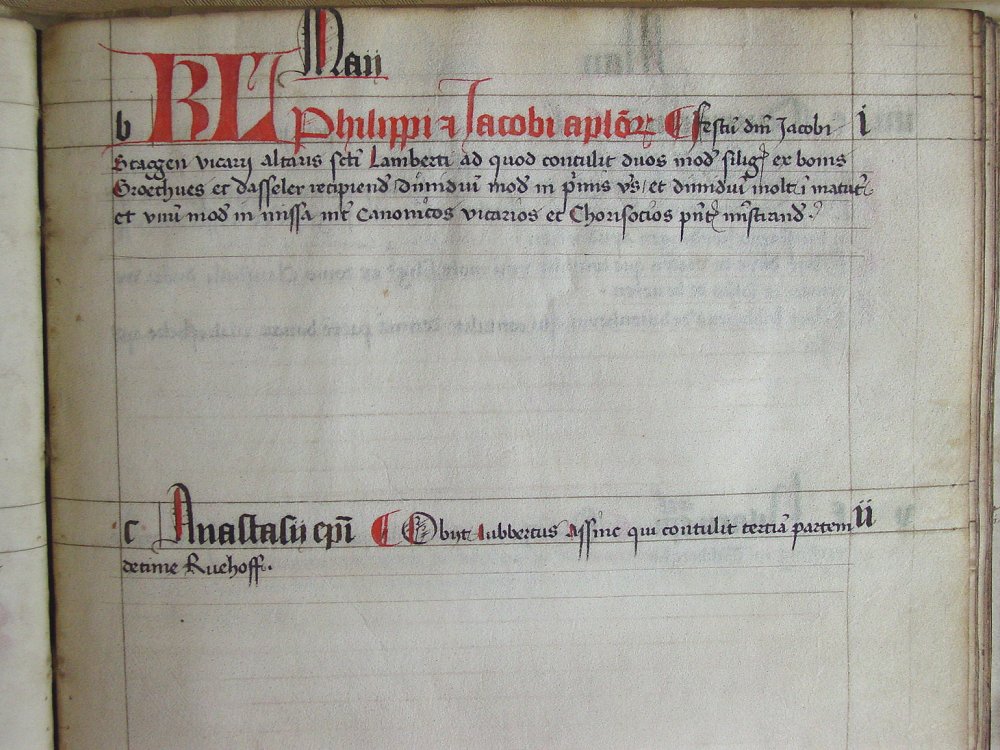 Maii
b KL Philippi et Jacobi aplōꝝ ¶ Festū dnī Jacobi i
Bracgen vicarij altaris sctī Lamberti ad quod contulit duos mod̄ siliḡ ex bonis
Groethues et dasseler recipiend̄ / dimidiū mod̄ in p̄mis vꝰs / et dimidiū molt i matut̄
et vnū mod̄ in missa int̄ Canonicos vicarios et Chorisocios pn̄t mīstrand̄
c Anastasij epī ¶ Obijt Lubbertus Assinc qui contulit tertiā partem ii
decime Ruehoff.